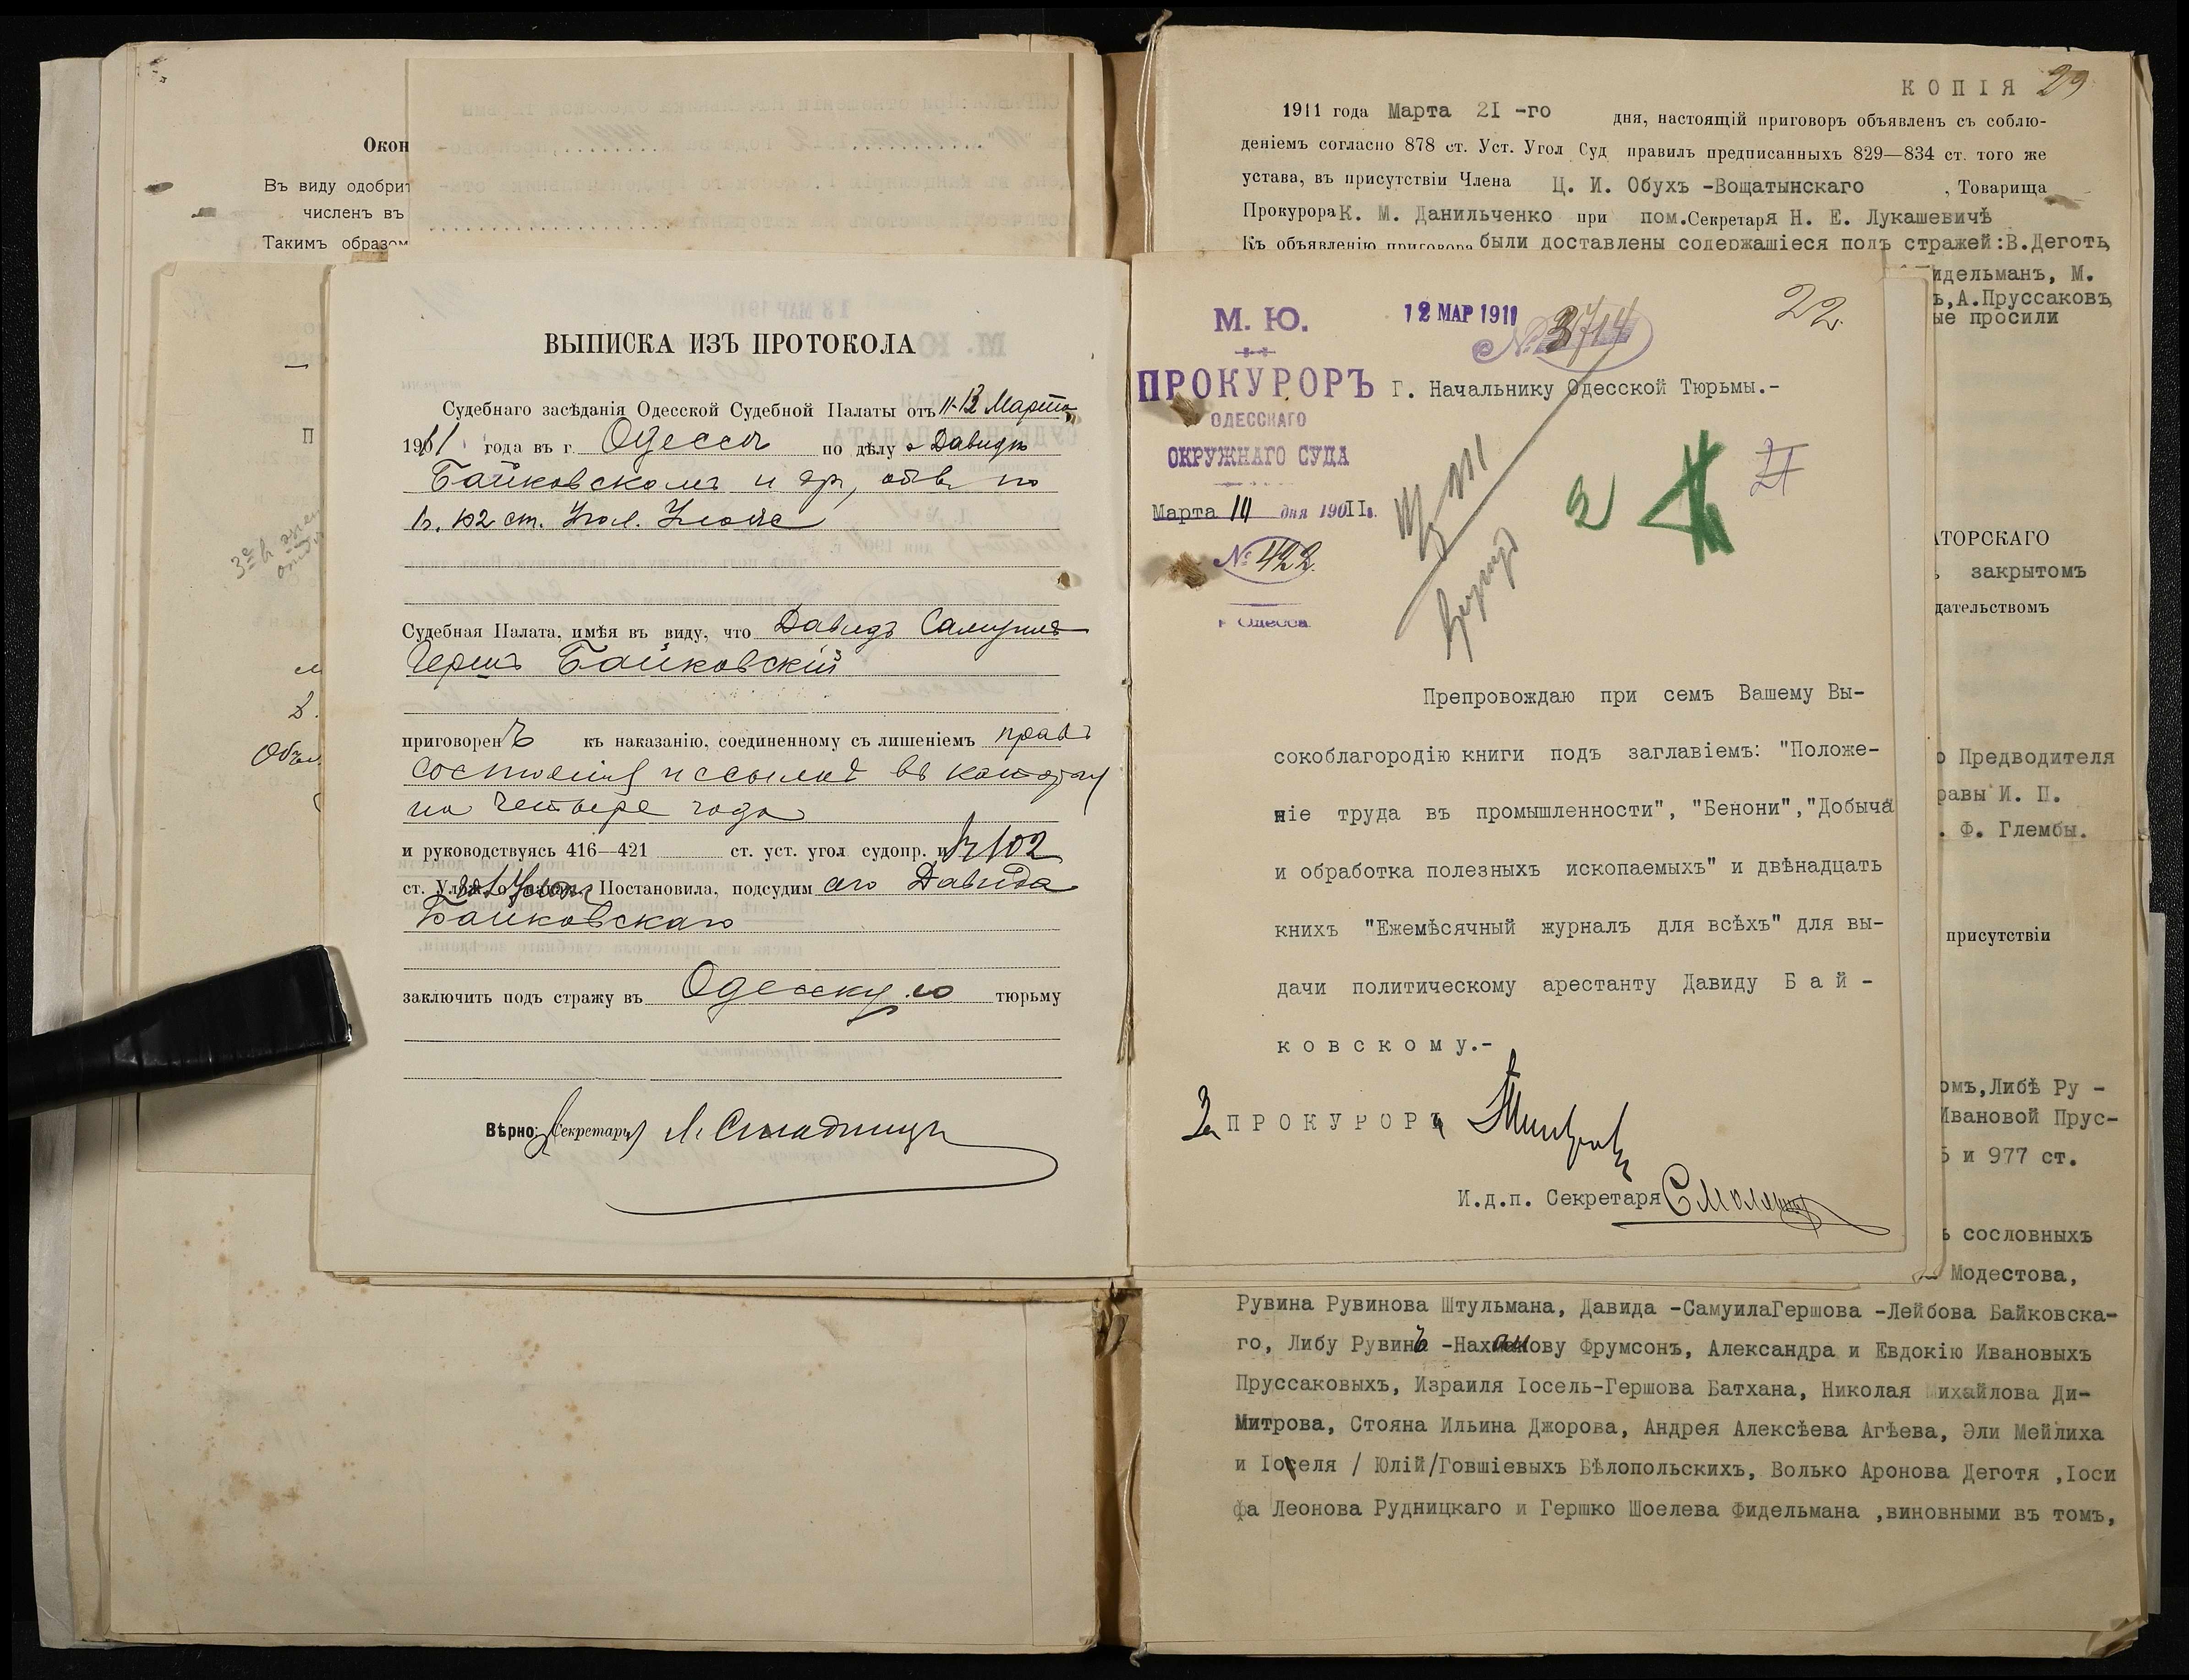 Окон
Въ виду одобрит
численъ въ
Такимъ образом
П
Объ
ВЫПИСКА ИЗЪ ПРОТОКОЛА
Судебнаго засѣданія Одесской Судебной Палаты отъ 11-12 Марта
1911 года въ г. Одессѣ по дѣлу о Давидѣ
Байковскомъ и др, обв. по
1 ч. 102 ст. Угол. Улож
Судебная Палата, имѣя въ виду, что Давидъ Самуилъ
Гершъ Байковскій
приговоренЪ къ наказанію, соединенному съ лишеніемъ правъ
состоянія и ссылкѣ въ каторгу
на четыре года
и руководствуясь 416—421 ст. уст. угол судопр. и 1 ч 102
ст. Постановила, подсудим аго Давида
Байковскаго
заключить подъ стражу въ Одесскую тюрьму
Вѣрно: Секретарь
КОПІЯ 29
1911 года Марта 21-го дня, настоящій приговоръ объявленъ съ соблю-
деніемъ согласно 878 ст. Уст. Угол Суд правилъ предписанныхъ 829—834 ст. того же
устава, въ присутствіи Члена Ц. И. Обухъ -Вощатынскаго , Товарища
Прокурора К. М. Данильченко при пом.Секретаря Н. Е. Лукашевичѣ
Къ объявленію приговора были доставлены содержащіеся подъ стражей:В.Деготь,
идельманъ, М.
ъ,А.Пруссаковъ,
ые просили
М. Ю.
12 МАР 1911
№ 3714
22
ПРОКУРОРЪ
Г. Начальнику Одесской Тюрьмы.-
ОДЕССКАГО
ОКРУЖНАГО СУДА
Марта 11 дня 1911г.
№ 422.
г. Одесса.
2
21
Препровождаю при семъ Вашему Вы-
сокоблагородію книги подъ заглавіемъ: "Положе-
ніе труда въ промышленности", "Бенони","Добыча
и обработка полезныхъ ископаемыхъ" и двѣнадцать
книхъ "Ежемѣсячный журналъ для всѣхъ" для вы-
дачи политическому арестанту Давиду Бай-
ковскому.-
За ПРОКУРОРЪ
И.д.п. Секретаря
АТОРСКАГО
закрытомъ
дательствомъ
о Предводителя
равы И. П.
. Ф. Глембы.
присутствіи
омъ,Либѣ Ру -
Ивановой Прус-
5 и 977 ст.
ъ сословныхъ
Модестова,
Рувина Рувинова Штульмана, Давида -СамуилаГершова -Лейбова Байковска-
го, Либу Рувинъ -Нахманову Фрумсонъ, Александра и Евдокію Ивановыхъ
Пруссаковыхъ, Израиля Іосель-Гершова Батхана, Николая Михайлова Ди-
Митрова, Стояна Ильина Джорова, Андрея Алексѣева Агѣева, Эли Мейлиха
и Іоселя / Юлій/Говшіевыхъ Бѣлопольскихъ, Волько Аронова Деготя ,Іоси
фа Леонова Рудницкаго и Гершко Шоелева Фидельмана ,виновными въ томъ,